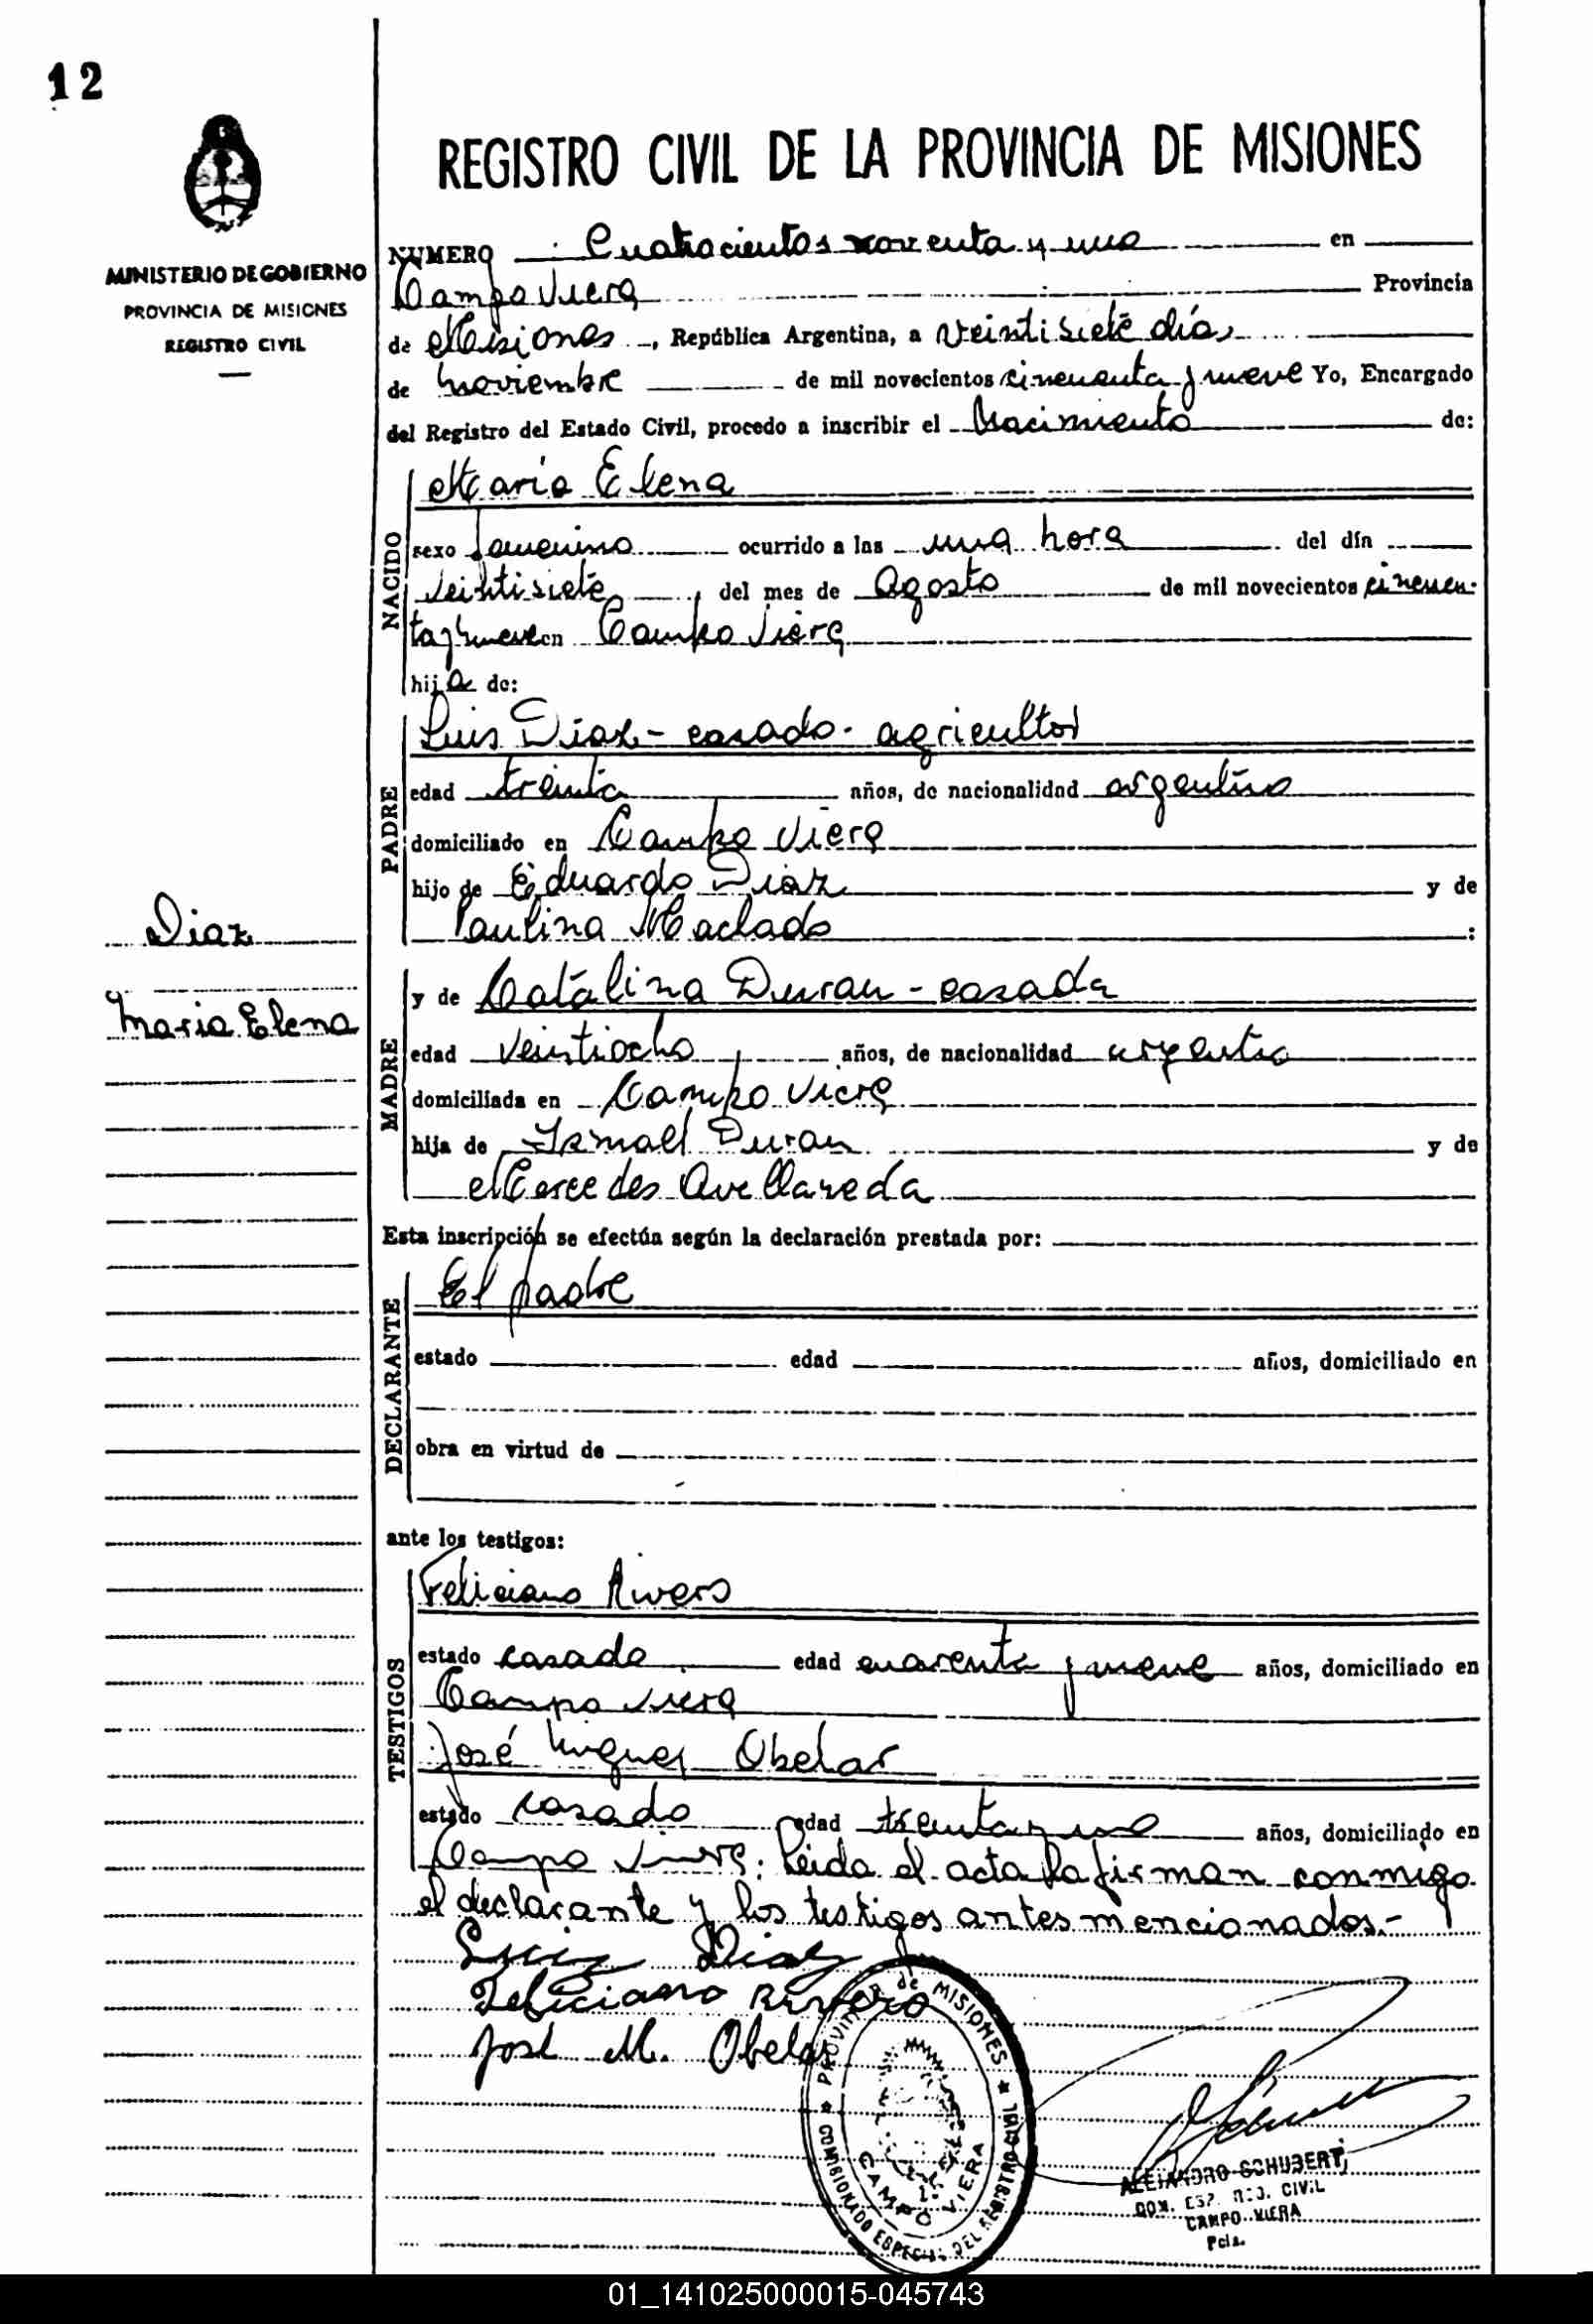 12
MINISTERIO DE GOBIERNO
PROVINCIA DE MISIONES
REGISTRO CIVIL
REGISTRO CIVIL DE LA PROVINCIA DE MISIONES
NUMERO Cuatrocientos noventa y uno en
Campo Viera Provincia
de Misiones, República Argentina, a veintisiete días
de noviembre de mil novecientos cincuenta y nueve Yo, Encargado
del Registro del Estado Civil, procedo a inscribir el Nacimiento de:
NACIDO
Maria Elena
sexo femenino ocurrido a las una hora del día
veintisiete del mes de Agosto de mil novecientos cincuen-
ta y nueve en Campo Viera
hija de:
PADRE
Luis Diaz - casado - agricultor
edad treinta años, de nacionalidad argentino
domiciliado en Campo Viera
hijo de Eduardo Diaz y de
Paulina Machado :
Diaz
Maria Elena
MADRE
y de Catalina Duran - casada
edad veintiocho años, de nacionalidad argentina
domiciliada en Campo Viera
hija de Ismael Duran y de
Mercedes Avellaneda
Esta inscripción se efectúa según la declaración prestada por:
DECLARANTE
El padre
estado edad años, domiciliado en
obra en virtud de
ante los testigos:
TESTIGOS
Feliciano Rivero
estado casado edad cuarenta y nueve años, domiciliado en
Campo Viera
José Miguel Obelar
estado casado edad treinta y uno años, domiciliado en
Campo Viera. Leida el acta la firman conmigo
el declarante y los testigos antes mencionados.-
Luiz Diaz
Feliciano Rivero
José M. Obelar
PROVINCIA de MISIONES
COMISIONADO ESPECIAL DEL REGISTRO CIVIL
CAMPO VIERA
ALEJANDRO SCHUBERT
COM. ESP. REG. CIVIL
CAMPO VIERA
Pcia.
01_141025000015-045743